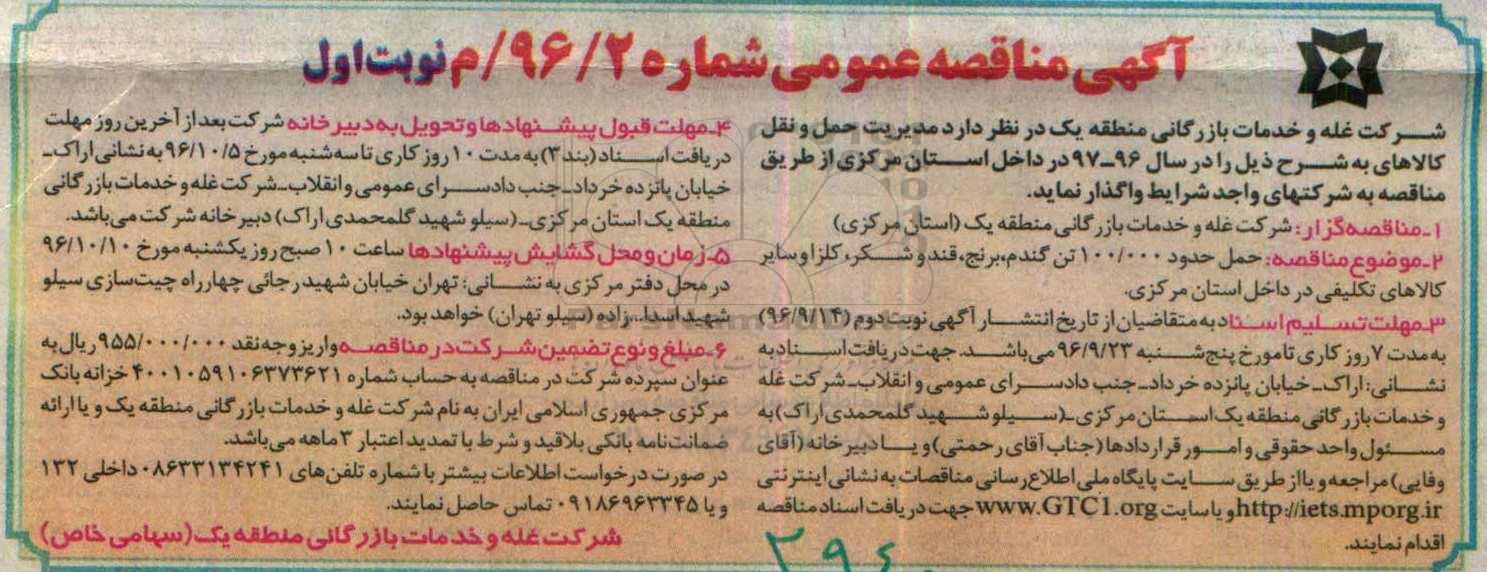 آگهی مناقصه عمومی شماره ۹۶/۲/م نوبت اول
شرکت غله و خدمات بازرگانی منطقه یک در نظر دارد مدیریت حمل و نقل
کالاهای به شرح ذیل را در سال ۹۶-۹۷ در داخل استان مرکزی از طریق
مناقصه به شرکتهای واجد شرایط واگذار نماید.
۱-مناقصه‌گزار: شرکت غله و خدمات بازرگانی منطقه یک (استان مرکزی)
۲-موضوع مناقصه: حمل حدود ۱۰۰/۰۰۰ تن گندم، برنج، قند و شکر، کلزا و سایر
کالاهای تکلیفی در داخل استان مرکزی.
۳-مهلت تسلیم اسناد به متقاضیان از تاریخ انتشار آگهی نوبت دوم (۹۶/۹/۱۴)
به مدت ۷ روز کاری تا مورخ پنج‌شنبه ۹۶/۹/۲۳ می‌باشد. جهت دریافت اسناد به
نشانی: اراک-خیابان پانزده خرداد-جنب دادسرای عمومی و انقلاب-شرکت غله
و خدمات بازرگانی منطقه یک استان مرکزی-(سیلو شهید گلمحمدی اراک) به
مسئول واحد حقوقی و امور قراردادها (جناب آقای رحمتی) و یا دبیرخانه (آقای
وفایی) مراجعه و یا از طریق سایت پایگاه ملی اطلاع‌رسانی مناقصات به نشانی اینترنتی
http://iets.mporg.ir و یا سایت www.GTC1.org جهت دریافت اسناد مناقصه
اقدام نمایند.
۴-مهلت قبول پیشنهادها و تحویل به دبیرخانه شرکت بعد از آخرین روز مهلت
دریافت اسناد (بند ۳) به مدت ۱۰ روز کاری تا سه‌شنبه مورخ ۹۶/۱۰/۵ به نشانی اراک-
خیابان پانزده خرداد-جنب دادسرای عمومی و انقلاب-شرکت غله و خدمات بازرگانی
منطقه یک استان مرکزی-(سیلو شهید گلمحمدی اراک) دبیرخانه شرکت می‌باشد.
۵-زمان و محل گشایش پیشنهادها ساعت ۱۰ صبح روز یکشنبه مورخ ۹۶/۱۰/۱۰
در محل دفتر مرکزی به نشانی: تهران خیابان شهید رجائی چهارراه چیت‌سازی سیلو
شهید اسدا...زاده (سیلو تهران) خواهد بود.
۶-مبلغ و نوع تضمین شرکت در مناقصه واریز وجه نقد ۹۵۵/۰۰۰/۰۰۰ ریال به
عنوان سپرده شرکت در مناقصه به حساب شماره ۴۰۰۱۰۵۹۱۰۶۳۷۳۶۲۱ خزانه بانک
مرکزی جمهوری اسلامی ایران به نام شرکت غله و خدمات بازرگانی منطقه یک و یا ارائه
ضمانت‌نامه بانکی بلاقید و شرط با تمدید اعتبار ۳ ماهه می‌باشد.
در صورت درخواست اطلاعات بیشتر با شماره تلفن‌های ۰۸۶۳۳۱۳۴۲۴۱ داخلی ۱۳۲
و یا ۰۹۱۸۶۹۶۳۳۴۵ تماس حاصل نمایند.
شرکت غله و خدمات بازرگانی منطقه یک (سهامی خاص)